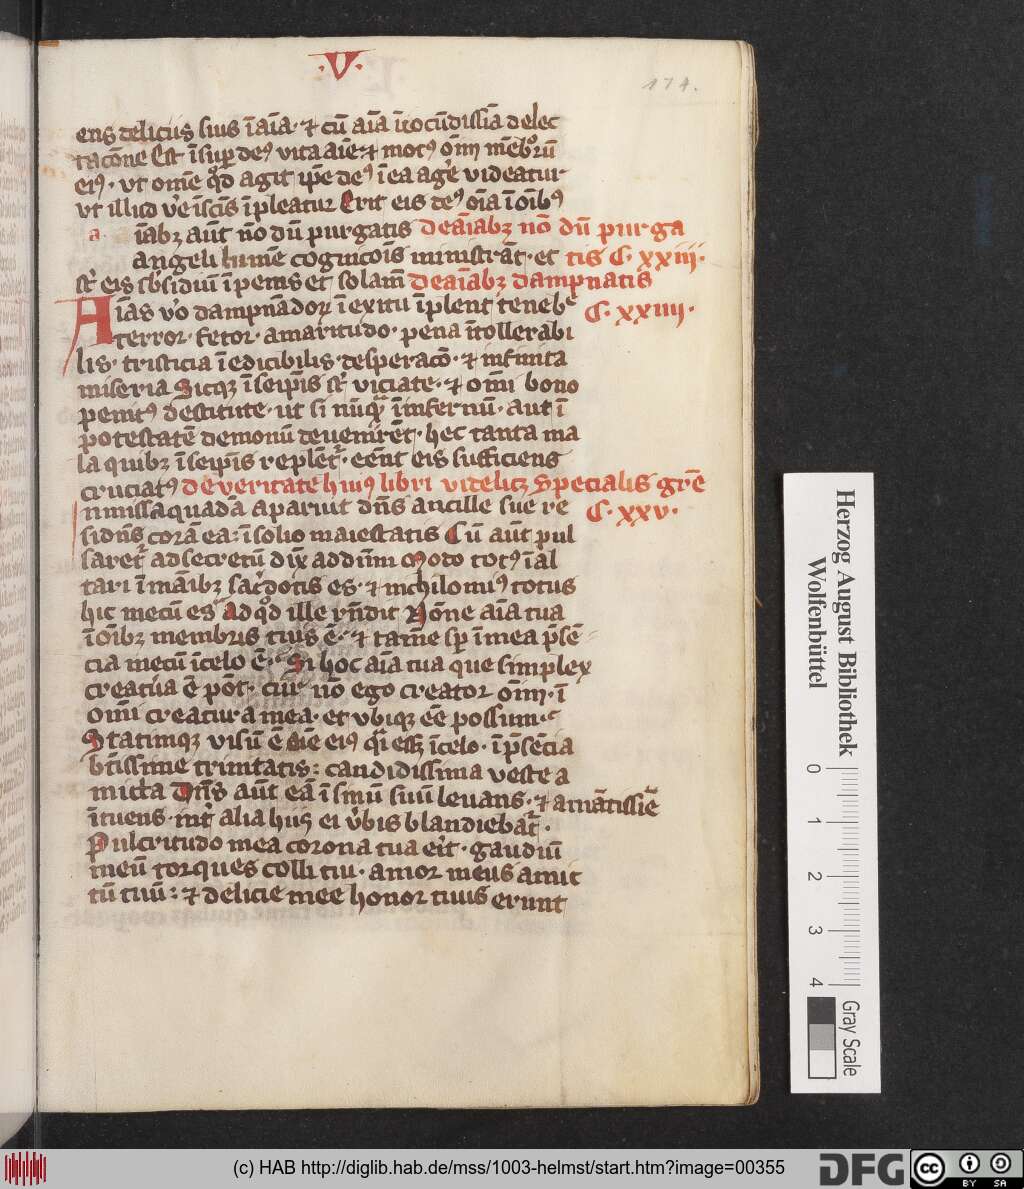 ·V·
174.
ens deliciis suis ī aīa· ⁊ cū aīa iiocūdissīa delec
tacōne Est īsuꝑ deꝰ vita aīe· ⁊ motꝰ oīm mēbroꝝ
eiꝰ· vt omē qd̄ agit ip̄e deꝰ ī ea aḡe videatur
vt illud v̄e īsc̄is īpleatur Erit eis deꝰ oīa ī oībꝰ
a īabꝫ aut nō dū purgatis De aīabꝫ nō dū purga
angeli lumē cogniꞇōis ministrāt· et tis C· xxiii·
st̄ eis sb̄sidiū ī penis et solam̄ De aīabꝫ dampnatis
Aīas v̄o dampnādoꝝ ī exitu īplent tenebᵉ C· xxiiii·
terror· fetor· amaritudo· pena ītollerabi
lis· tristicia īedicibilis· desperacō· ⁊ infinita
miseria Sicqꝫ ī seip̄is st̄ viciate· ⁊ om̄i bono
penitꝰ destitute· ut si nūqᷓ īinfernū· aut ī
potestatē demonū deuenirēt· hec tanta ma
la quibꝫ īseip̄is replēt̄· eēnt eis sufficiens
cruciatꝰ De veritate huiꝰ libri videlicꝫ Specialis gr̄e
n missa quadā aparuit dn̄s ancille sue re C· xxv·
sidn̄s corā ea: ī solio maiestatis Cū aūt pul
saret̄ ad secretū dix̄ ad dn̄m Moto totꝰ ī al
tari ī māibꝫ sac̄dotis es· ⁊ nichilomiꝰ totus
hic mecū es Ad qd̄ ille rn̄dit Nōne aīa tua
ī oībꝫ membris tuis ē· ⁊ tamē sꝑ ī mea p̄sē
cia mecū ī celo ē· Si hoc aīa tua que simplex
creatūa ē pōt· cur nō ego creator oīm· ī
om̄i creatura mea· et vbiqꝫ eē possum·
Statimqꝫ visū ē aīe eiꝰ qī eēꝫ ī celo· ī p̄sēcia
bt̄issime trinitatis: candidissima veste a
micta Dn̄s aūt eā ī sinū suū leuans· ⁊ amātissīe
ītuens· int̄ alia hiis ei v̄bis blandiebat̄·
Pulcritudo mea corona tua erit· gaudiū
meū torques colli tui· amor meus amic
tū tuū: ⁊ delicie mee honor tuus erunt
Herzog August Bibliothek
Wolfenbüttel
0 1 2 3 4
Gray Scale
(c) HAB http://diglib.hab.de/mss/1003-helmst/start.htm?image=00355
DFG
cc BY SA